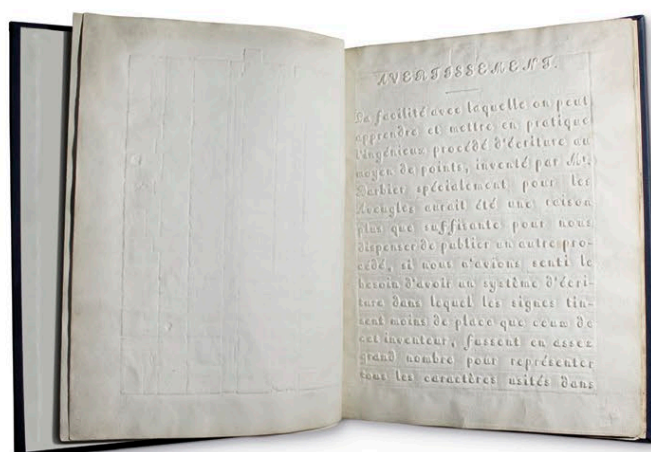 AVERTISSEMENT.
La facilité avec laquelle on peut
apprendre et mettre en pratique
l'ingénieux procédé d'écriture au
moyen de points, inventé par Mr.
Barbier spécialement pour les
Aveugles aurait été une raison
plus que suffisante pour nous
dispenser de publier un autre pro-
cédé, si nous n'avions senti le
besoin d'avoir un système d'écri-
ture dans lequel les signes tin-
sent moins de place que ceux de
cet inventeur, fussent en assez
grand nombre pour représenter
tous les caractères usités dans